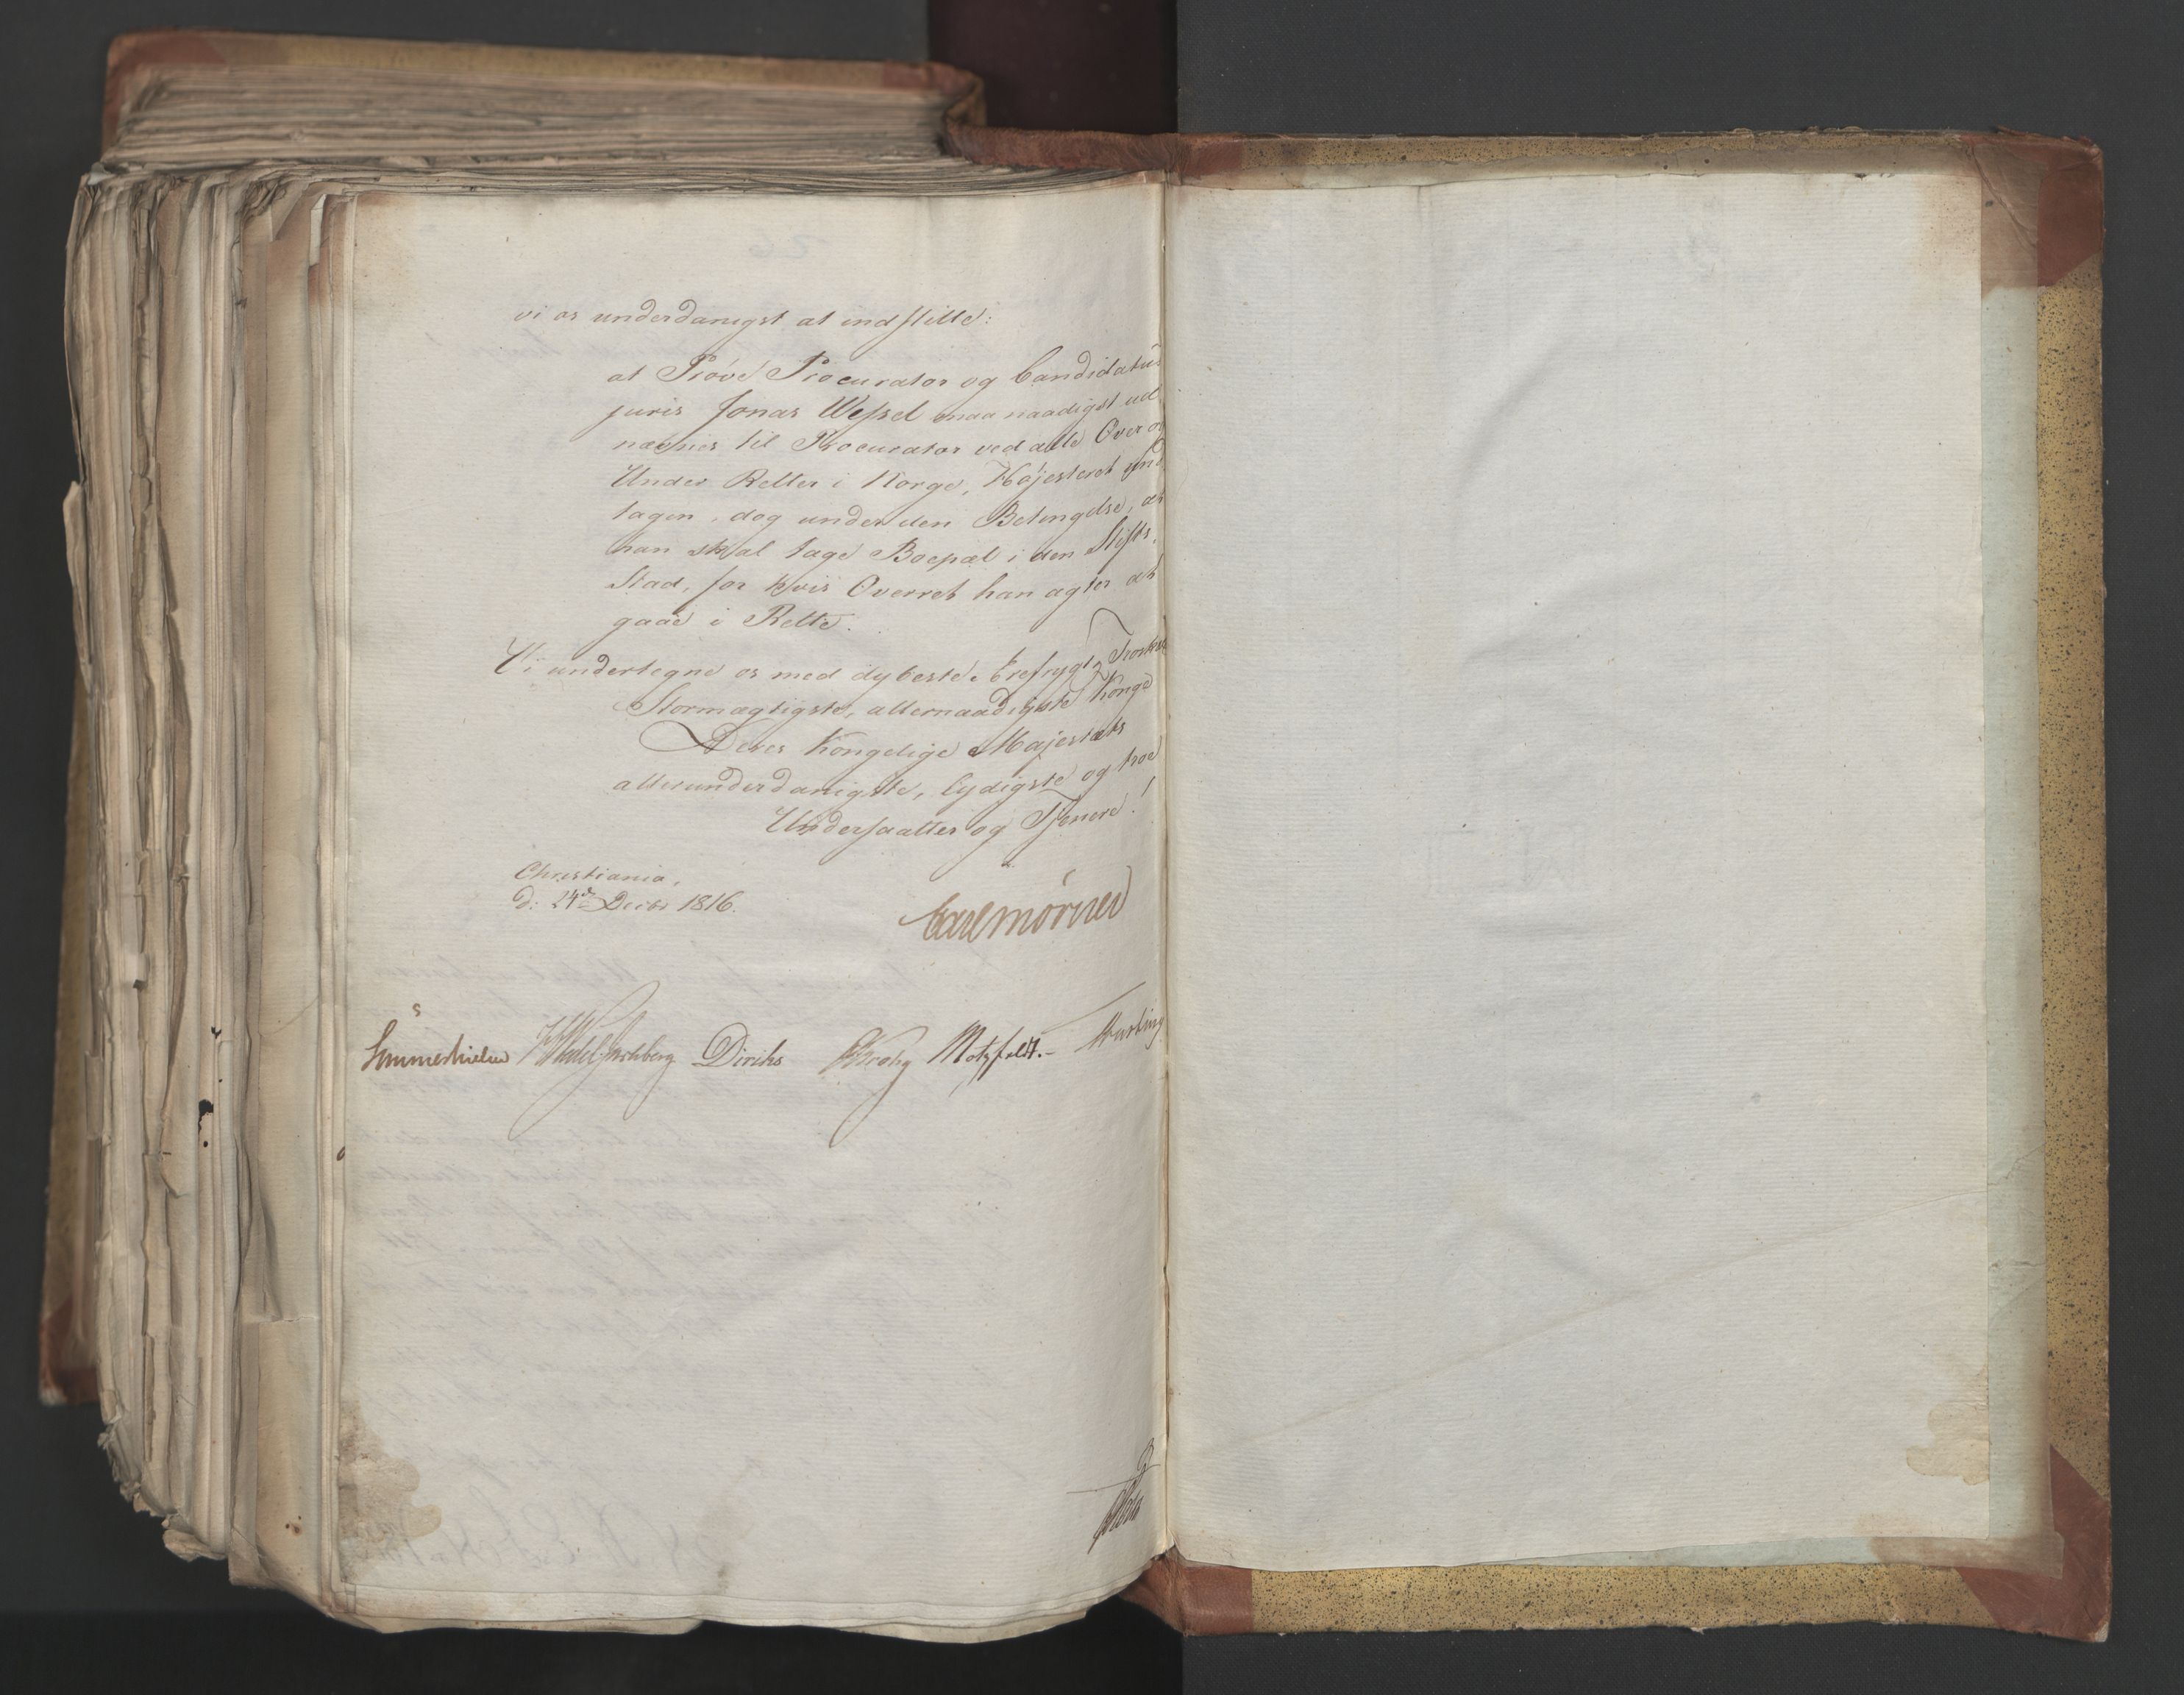 vi os underdanigst at indstille:
at Prøve Procurator og Candidatus
juris Jonas Wessel maa naadigst ud
nævnes til Procurator ved alle Over og
Under Retter i Norge, Høiesteret und
tagen, dog under den Betingelse, at
han skal tage Boepæl i den Stifts-
Stad, for hvis Overret han agter at
gaae i Rette.
Vi undertegne os med dybeste Erefrygt
Stormægtigste, allernaadigste Konge
Deres Kongelige Majestæts
allerunderdanigste, lydigste og troe
Undersaatter og Tjenere!
Christiania,
d: 24de Decbr 1816.
Carl Mörner
Sommerhielm Diriks Krohg Motzfeldt.-